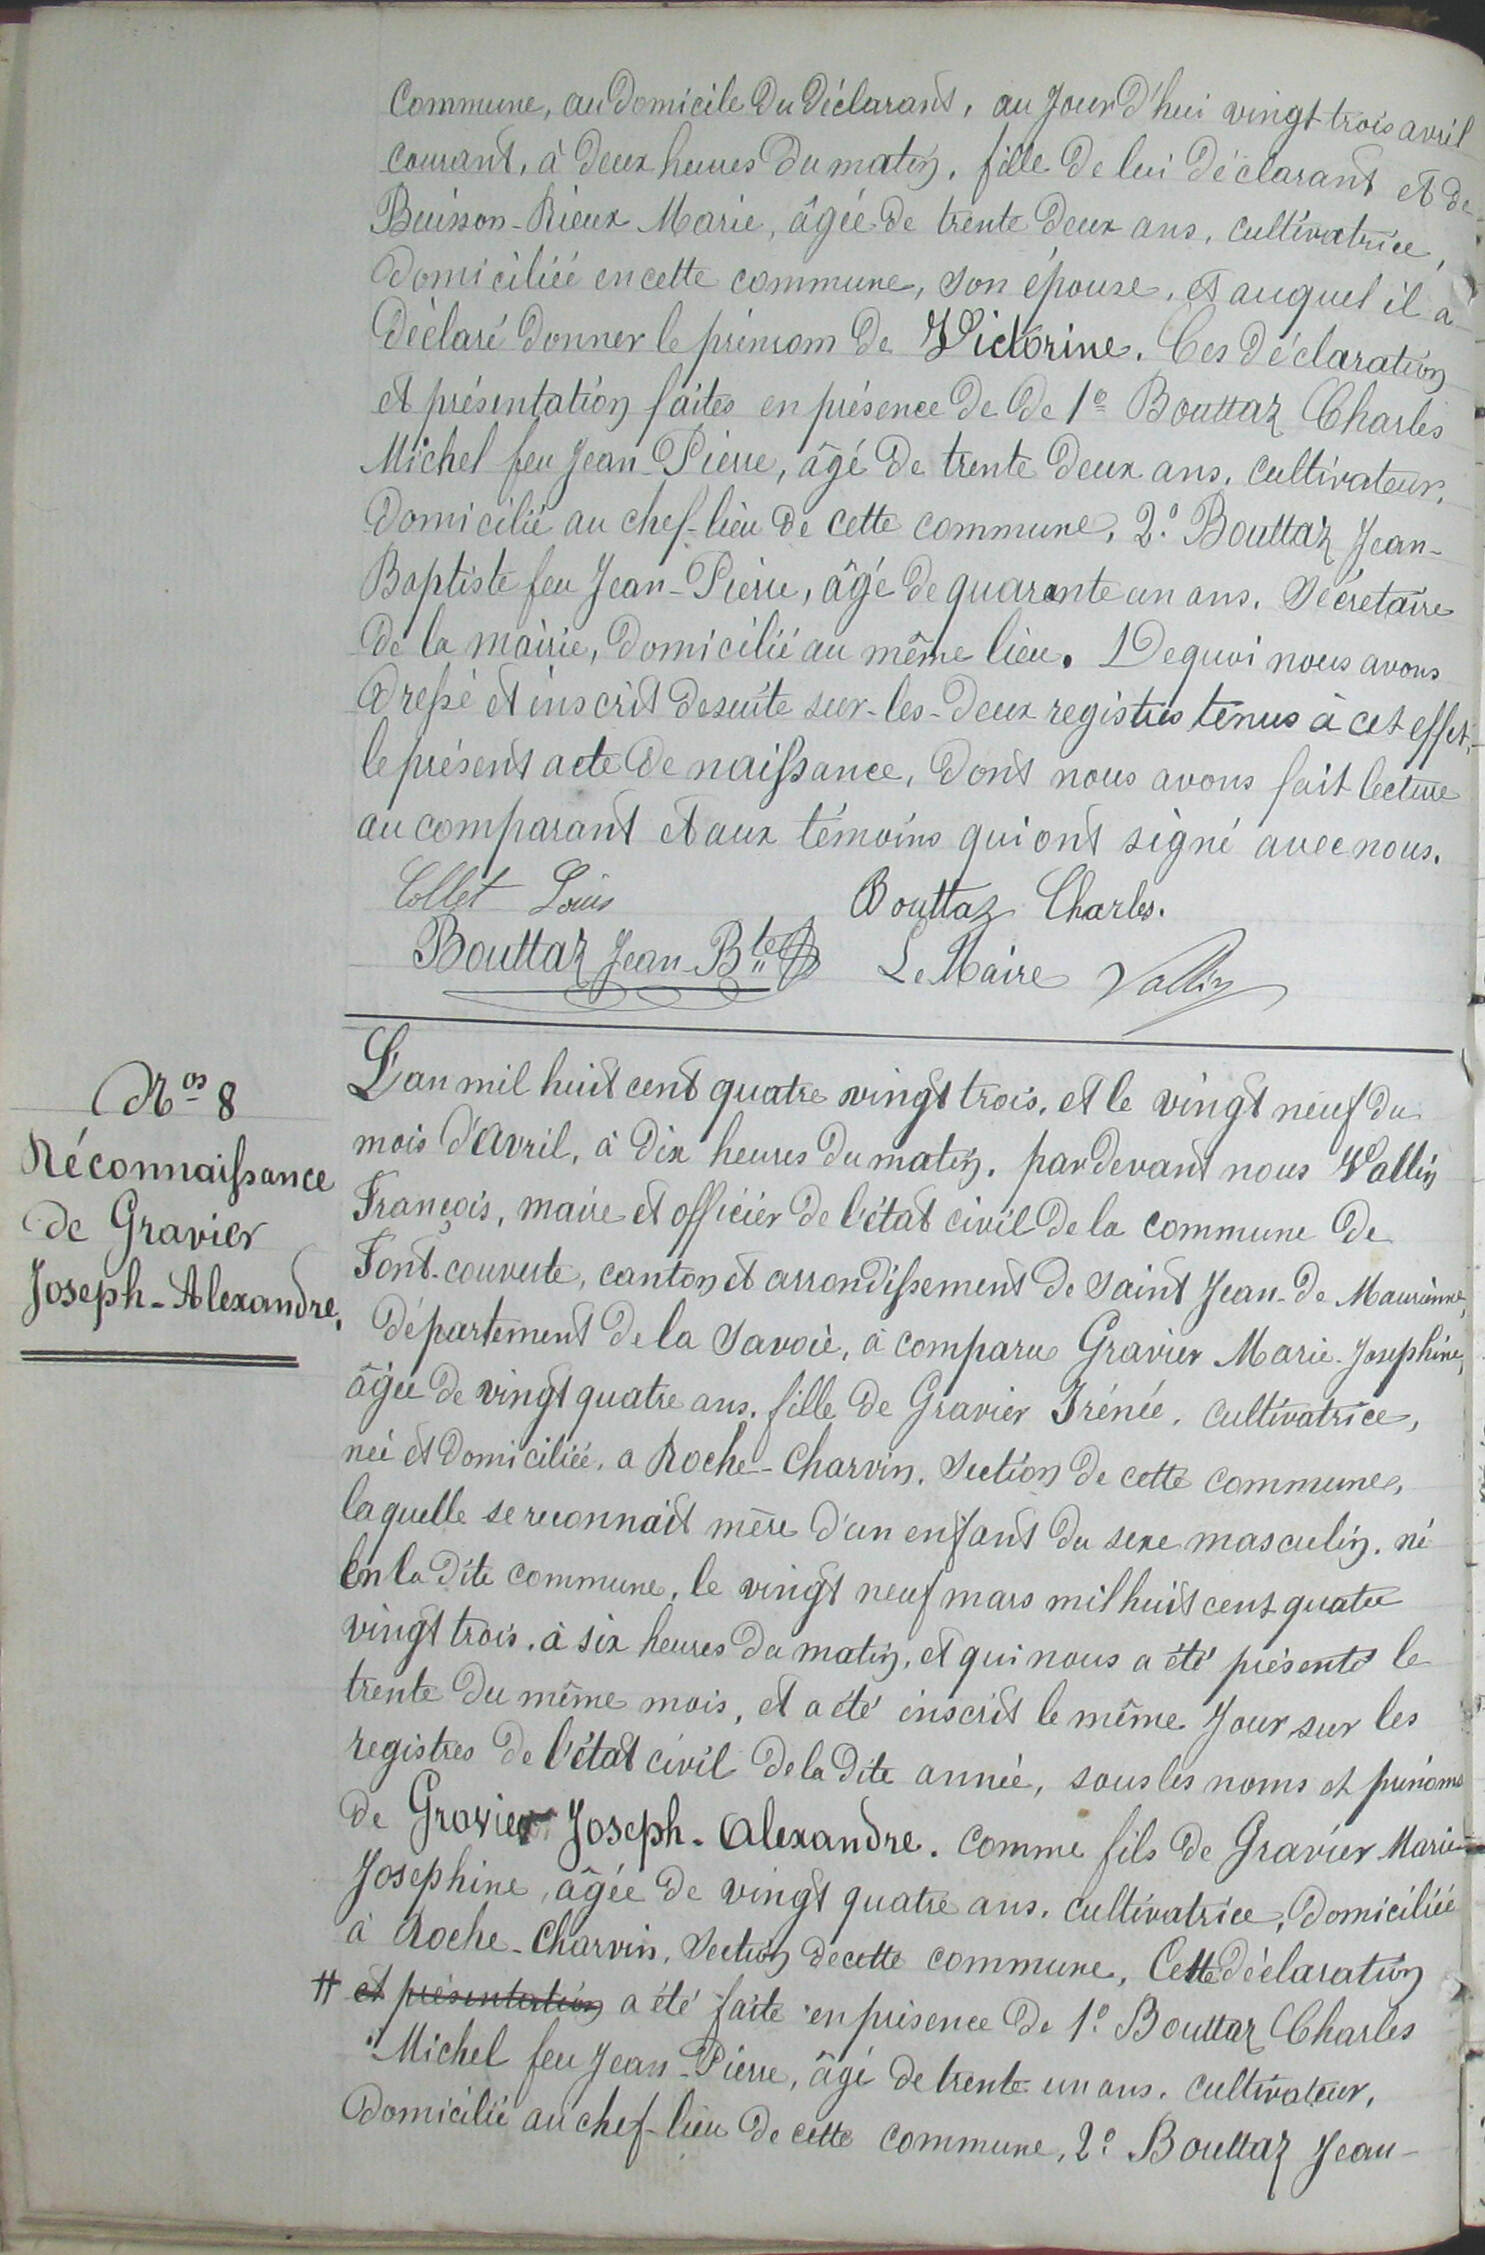 commune, au domicile du déclarant, au jour d'hui vingt trois avril
courant, à deux heures du matin, fille de lui déclarant et de
Buisson-Rieux Marie, âgée de trente deux ans, cultivatrice,
domiciliée en cette commune, son épouse, et auquel il a
déclaré donner le prénom de Victorine. Ces déclaration
et présentation faites en présence de de 1º Bouttaz Charles
Michel feu Jean-Pierre, âgé de trente deux ans, cultivateur,
domicilié au chef-lieu de cette commune, 2º Bouttaz Jean-
Baptiste feu Jean-Pierre, âgé de quarante un ans, Sécretaire
de la mairie, domicilié au même lieu. De quoi nous avons
dressé et inscrit desuite sur-les-deux registres tenus à cet effet,
le présent acte de naissance, dont nous avons fait lecture
au comparant et aux témoins qui ont signé avec nous.
Collet Louis Bouttaz Charles.
Bouttaz Jean-Bte Le Maire Vallin
Nos 8
Réconnaissance
de Gravier
Joseph-Alexandre.
L'an mil huit cent quatre vingt trois, et le vingt neuf du
mois d'Avril, à dix heures du matin, pardevant nous Vallin
François, maire et officier de l'état civil de la commune de
Font-couverte, canton et arrondissement de Saint Jean-de Maurienne,
département de la Savoie, à comparu Gravier Marie-Josephine,
âgée de vingt quatre ans, fille de Gravier Irénée, cultivatrice,
née et domiciliée, a Roche-Charvin, Section de cette commune,
laquelle se reconnait mère d'un enfant du sexe masculin, né
En la dite commune, le vingt neuf mars mil huit cent quatre
vingt trois, à six heures du matin, et qui nous a été présenté le
trente du même mois, et a été inscrit le même Jour, sur les
registres de l'état civil de la dite année, sous les noms et prénoms
de Gravier Joseph-Alexandre, comme fils de Gravier Marie-
Josephine, âgée de vingt quatre ans, cultivatrice, domiciliée
à Roche-Charvin, Section de cette commune, Cette déclaration
# et présentation a été faite en présence de 1º Bouttaz Charles
Michel feu Jean-Pierre, âgé de trente un ans, cultivateur,
domicilié au chef-lieu de cette commune, 2º Bouttaz Jean-